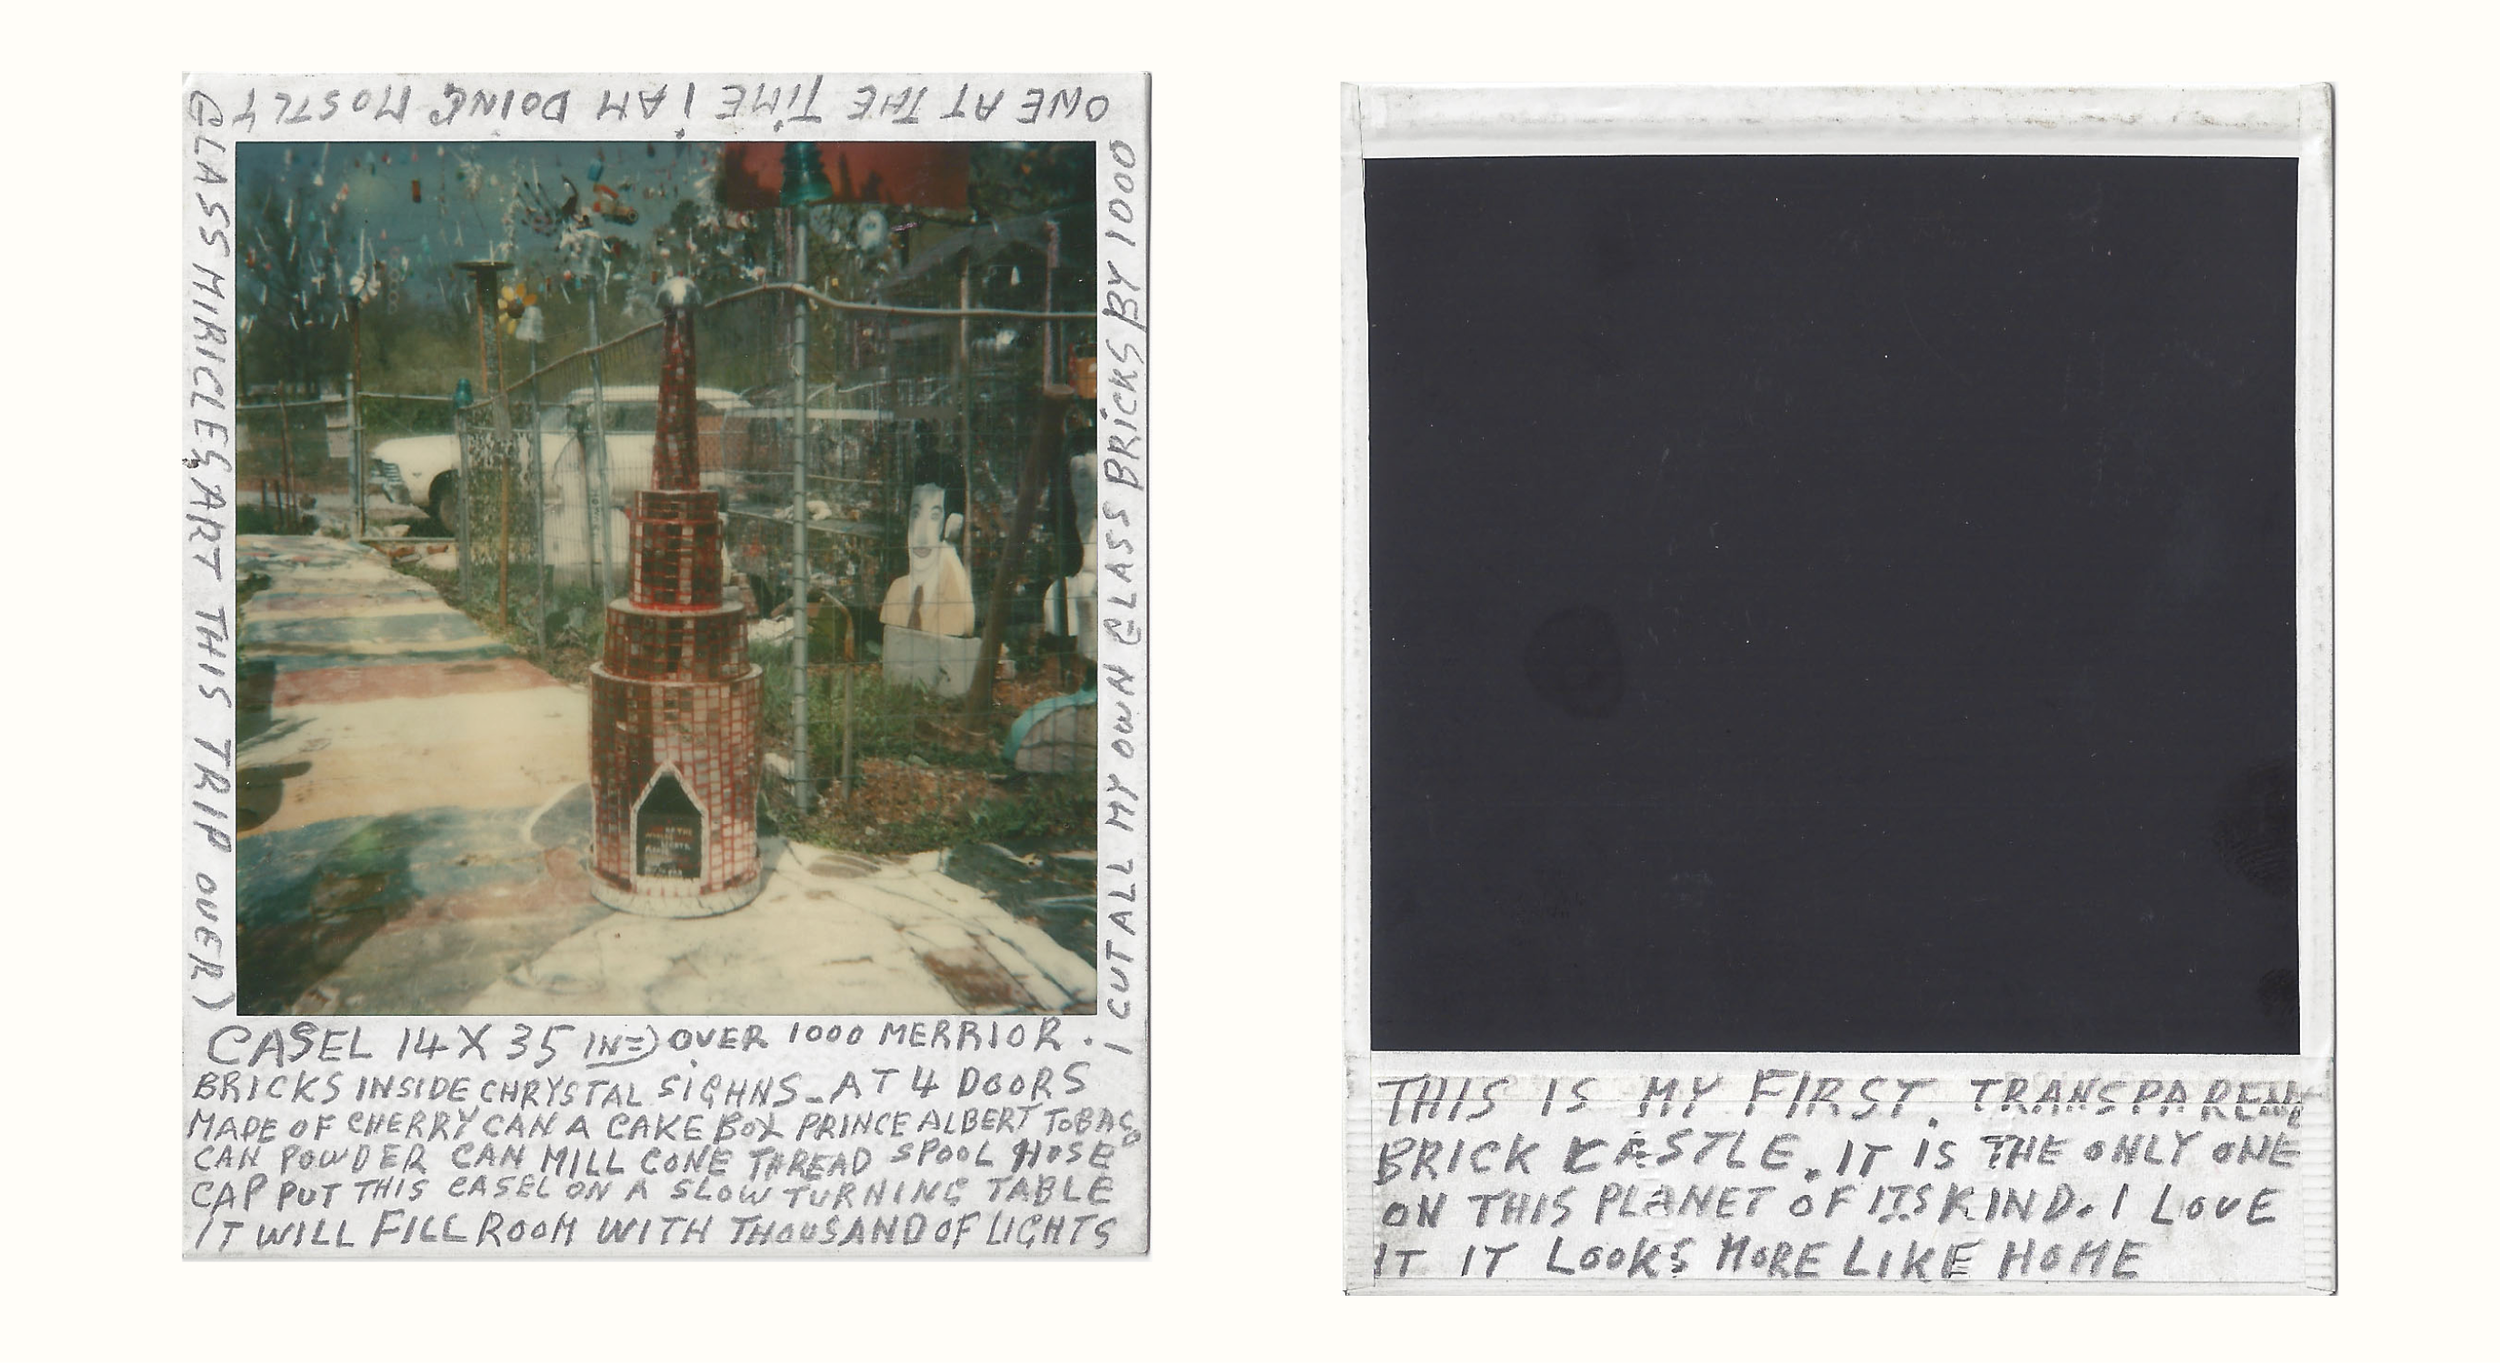 CASEL 14 X 35 IN=) OVER 1000 MERRIOR.
BRICKS INSIDE CHRYSTAL SIGHNS_AT 4 DOORS
MADE OF CHERRY CAN A CAKE BOX PRINCE ALBERT TOBACO
CAN POWDER CAN MILL CONE THREAD SPOOL HOSE
CAP PUT THIS CASEL ON A SLOW TURNING TABLE
IT WILL FILL ROOM WITH THOUSAND OF LIGHTS
I CUT ALL MY OWN GLASS BRICKS BY 1000
ONE AT THE TIME i AM DOING MOSTLY
GLASS MIRICLES, ART THIS TRIP OVER)
THIS IS MY FIRST. TRANSPARENT
BRICK CASTLE. IT IS THE ONLY ONE
ON THIS PLANET OF ITS KIND. I LOVE
IT IT LOOKS MORE LIKE HOME